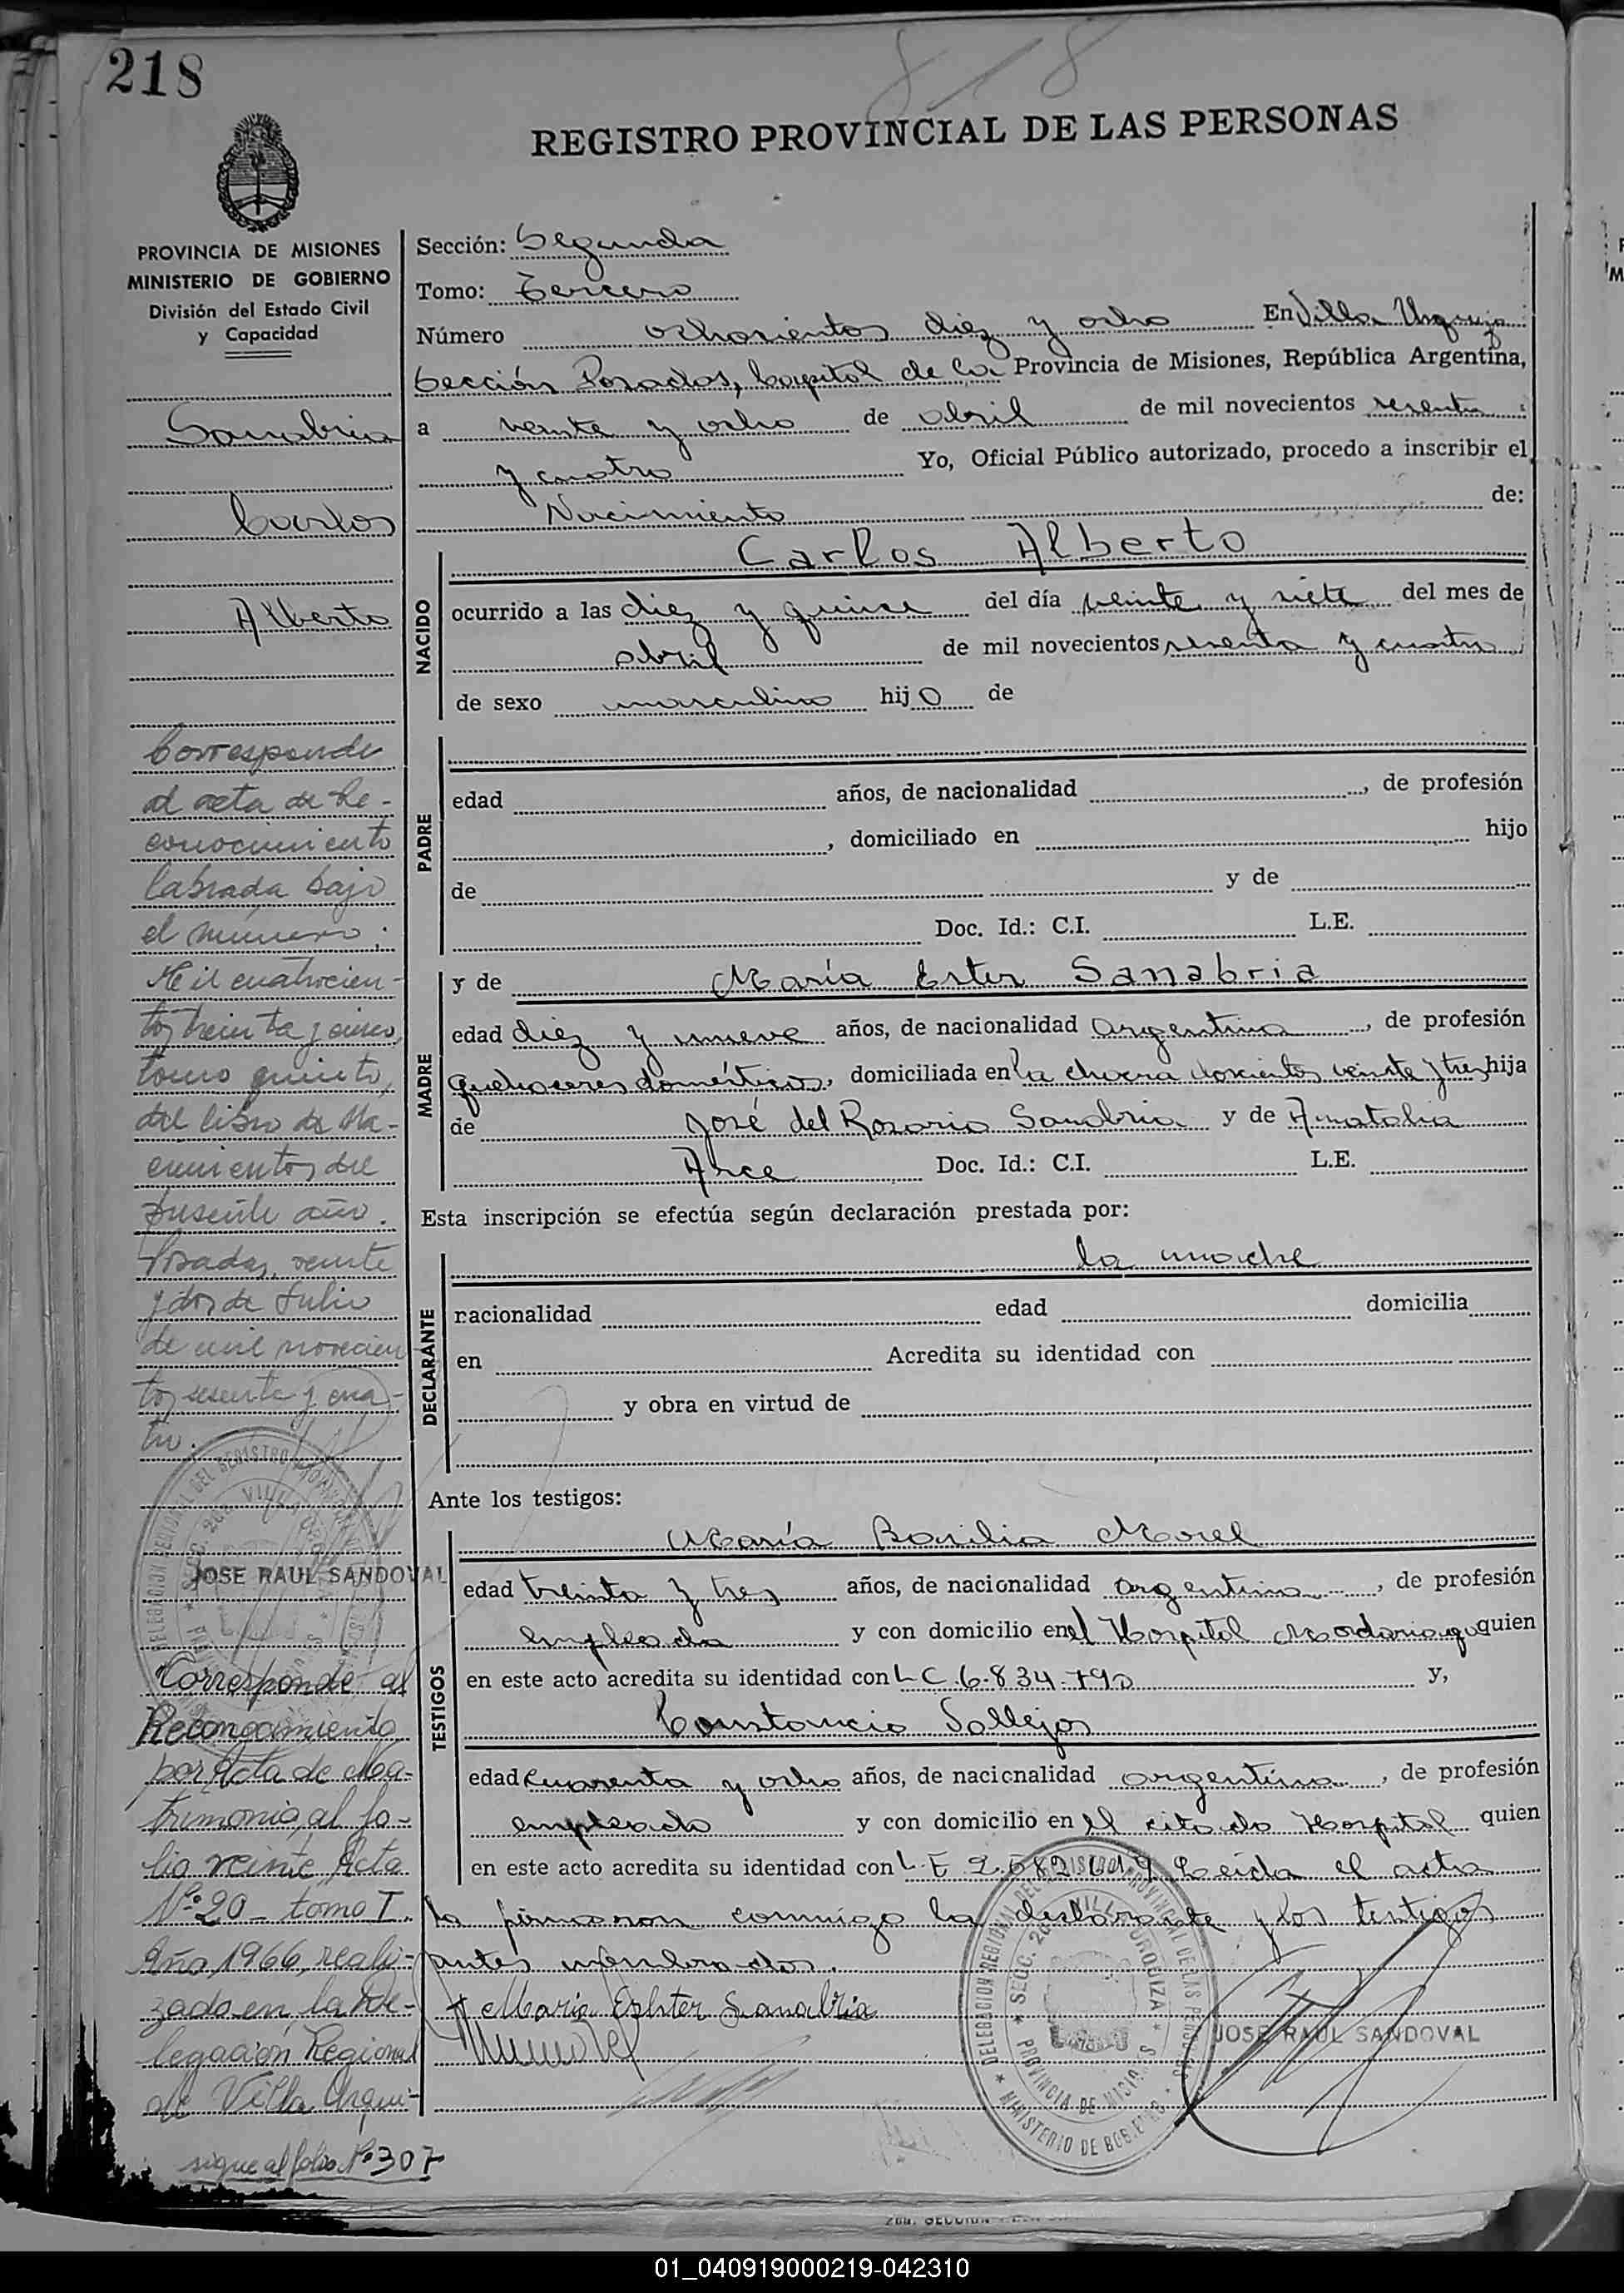 218
8-18
REGISTRO PROVINCIAL DE LAS PERSONAS
PROVINCIA DE MISIONES
MINISTERIO DE GOBIERNO
División del Estado Civil
y Capacidad
Sanabria
Carlos
Alberto
Corresponde
al acta de Re-
conocimiento
labrada bajo
el número:
Mil cuatrocien-
tos treinta y cinco,
tomo quinto,
del libro de Na-
cimientos del
presente año.
Posadas, veinte
y dos de Julio
de mil novecien
tos sesenta y cua-
tro.
JOSE RAUL SANDOVAL
Corresponde al
Reconocimiento
por Acta de Ma-
trimonio, al fo-
lio veinte, Acta
Nº 20 - tomo I.
Año 1966, reali-
zado en la De-
legación Regional
de Villa Urqui-
sigue al folio Nº 307
Sección: Segunda
Tomo: Tercero
Número ochocientos diez y ocho En Villa Urquiza
Sección Posadas, Capital de la Provincia de Misiones, República Argentina,
a veinte y ocho de abril de mil novecientos sesenta
y cuatro Yo, Oficial Público autorizado, procedo a inscribir el
Nacimiento de:
NACIDO
Carlos Alberto
ocurrido a las diez y quince del día veinte y siete del mes de
abril de mil novecientos sesenta y cuatro
de sexo masculino hijo de
PADRE
edad años, de nacionalidad , de profesión
, domiciliado en hijo
de y de
Doc. Id.: C.I. L.E.
MADRE
y de María Ester Sanabria
edad diez y nueve años, de nacionalidad argentina , de profesión
quehaceres domésticos, domiciliada en la chacra doscientos veinte y tres hija
de José del Rosario Sanabria y de Anatalia
Arce Doc. Id.: C.I. L.E.
Esta inscripción se efectúa según declaración prestada por:
DECLARANTE
la madre
nacionalidad edad domicilia
en Acredita su identidad con
y obra en virtud de
Ante los testigos:
TESTIGOS
María Basilia Morel
edad treinta y tres años, de nacionalidad argentina , de profesión
empleada y con domicilio en el Hospital Madariaga quien
en este acto acredita su identidad con L C 6.834.790 y,
Constancio Vallejos
edad cuarenta y ocho años, de nacionalidad argentina , de profesión
empleado y con domicilio en el citado Hospital quien
en este acto acredita su identidad con L. E 2.582.019 Leida el acta
la firmaron conmigo la declarante y los testigos
antes nombrados.
Maria Eshter Sanabria
DELEGACION REGIONAL DEL REGISTRO PROVINCIAL DE LAS PERSONAS
SECC. 2da. VILLA URQUIZA
PROVINCIA DE MISIONES
MINISTERIO DE GOBIERNO
JOSE RAUL SANDOVAL
01_040919000219-042310